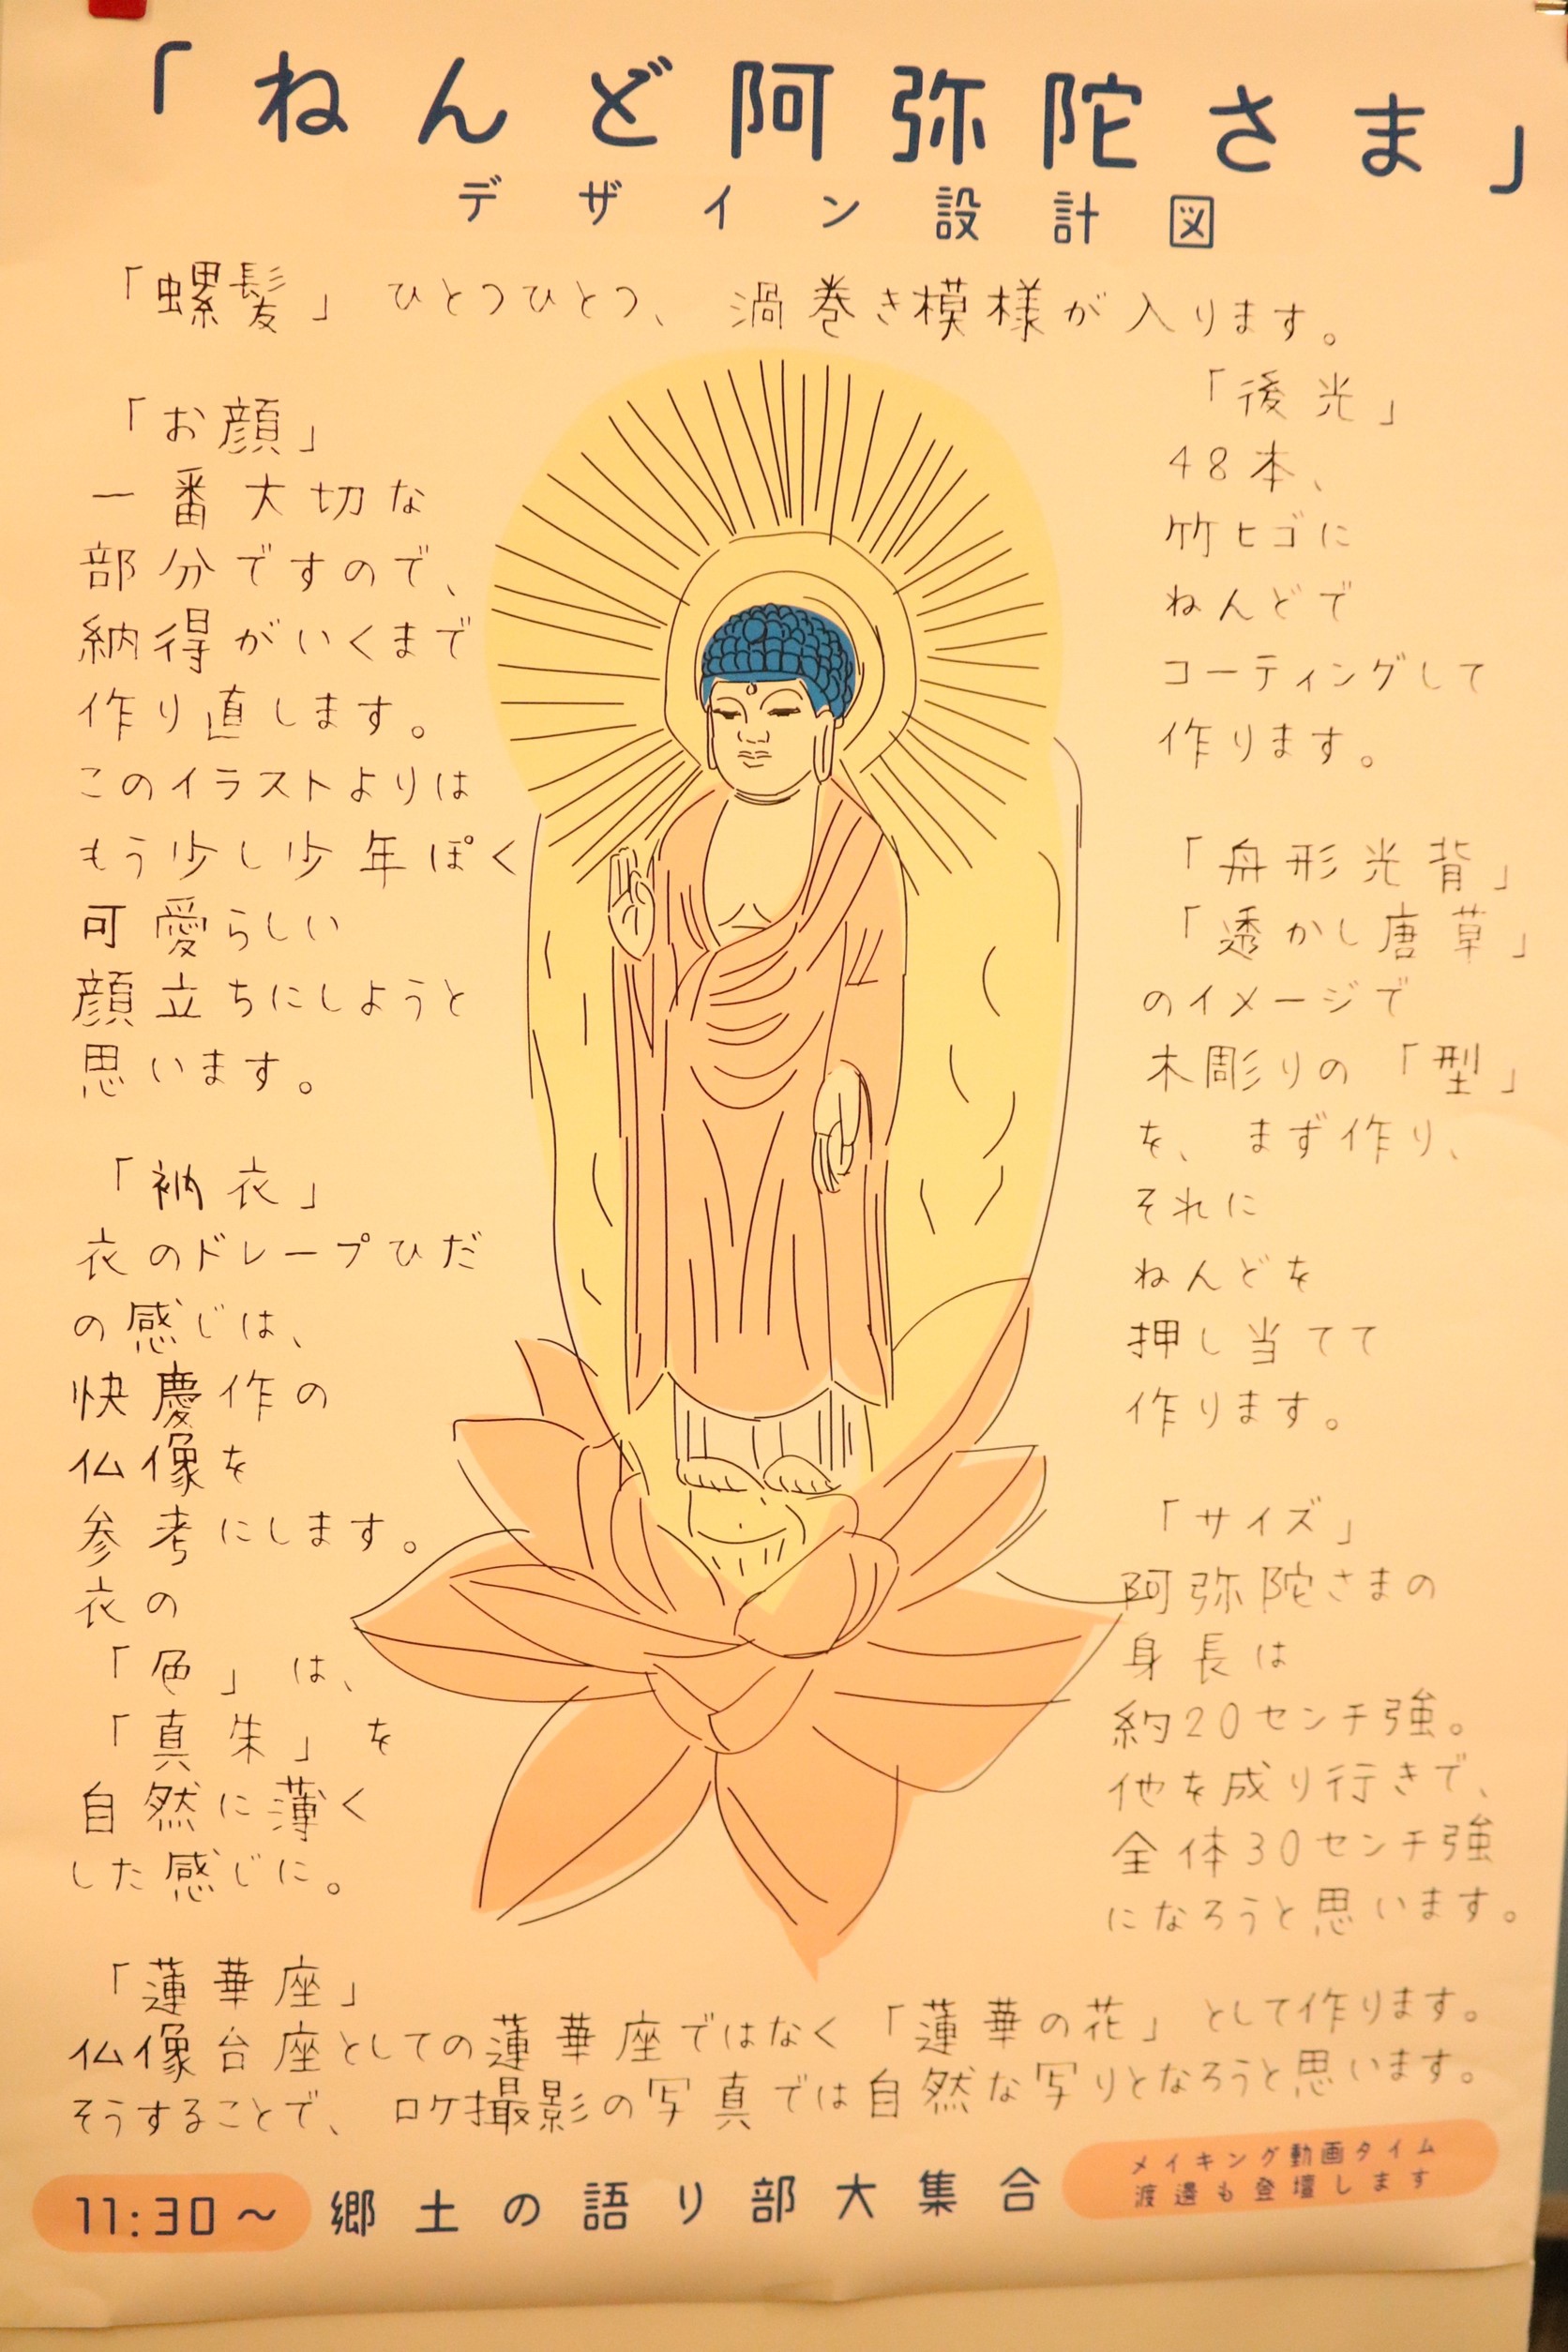 「ねんど阿弥陀さま」
デザイン設計図
「螺髪」 ひとつひとつ、渦巻き模様が入ります。
「お顔」
一番大切な
部分ですので、
納得がいくまで
作り直します。
このイラストよりは
もう少し少年ぽく
可愛らしい
顔立ちにしようと
思います。
「衲衣」
衣のドレープひだ
の感じは、
快慶作の
仏像を
参考にします。
衣の
「色」は、
「真朱」を
自然に薄く
した感じに。
「後光」
48本、
竹ヒゴに
ねんどで
コーティングして
作ります。
「舟形光背」
「透かし唐草」
のイメージで
木彫りの「型」
を、まず作り、
それに
ねんどを
押し当てて
作ります。
「サイズ」
阿弥陀さまの
身長は
約20センチ強。
他を成り行きで、
全体30センチ強
になろうと思います。
「蓮華座」
仏像台座としての蓮華座ではなく「蓮華の花」として作ります。
そうすることで、ロケ撮影の写真では自然な写りとなろうと思います。
11:30～ 郷土の語り部大集合
メイキング動画タイム
渡邉も登壇します